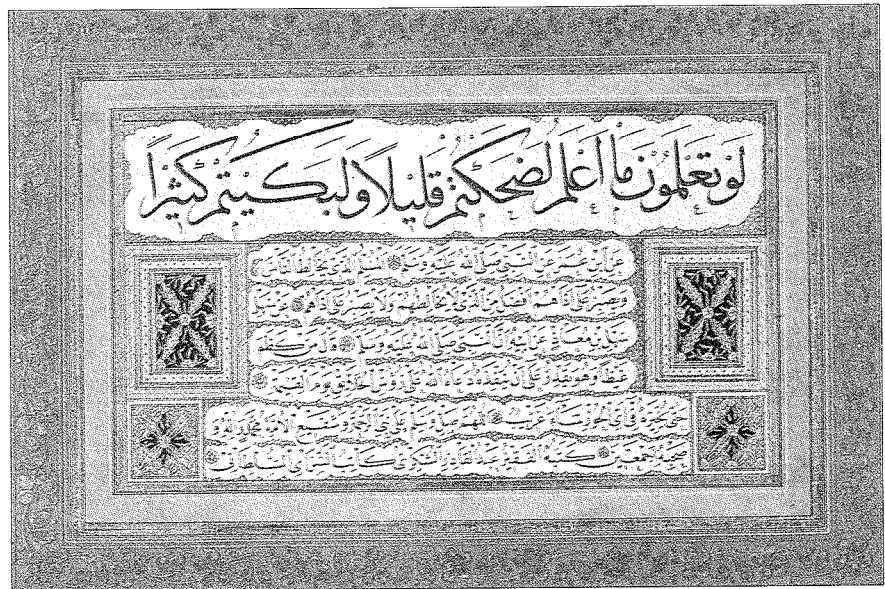 لَوْ تَعْلَمُونَ مَا أَعْلَمُ لَضَحِكْتُمْ قَلِيلاً وَلَبَكَيْتُمْ كَثِيرًا
عن ابن عمر عن النبي صلى الله عليه وسلم المسلم الذي يخالط الناس
ويصبر على أذاهم أفضل من الذي لا يخالطهم ولا يصبر على أذاهم عن
سهل بن معاذ عن أبيه أن النبي صلى الله عليه وسلم قال من كظم
غيظا وهو يقدر على أن ينفذه دعاه الله على رؤس الخلائق يوم القيمة
حتى يخيره في أي الحور شاء اللهم صل وسلم على نبي الرحمة وشفيع الامة محمد وآله و
صحبه اجمعين كتبه الفقير